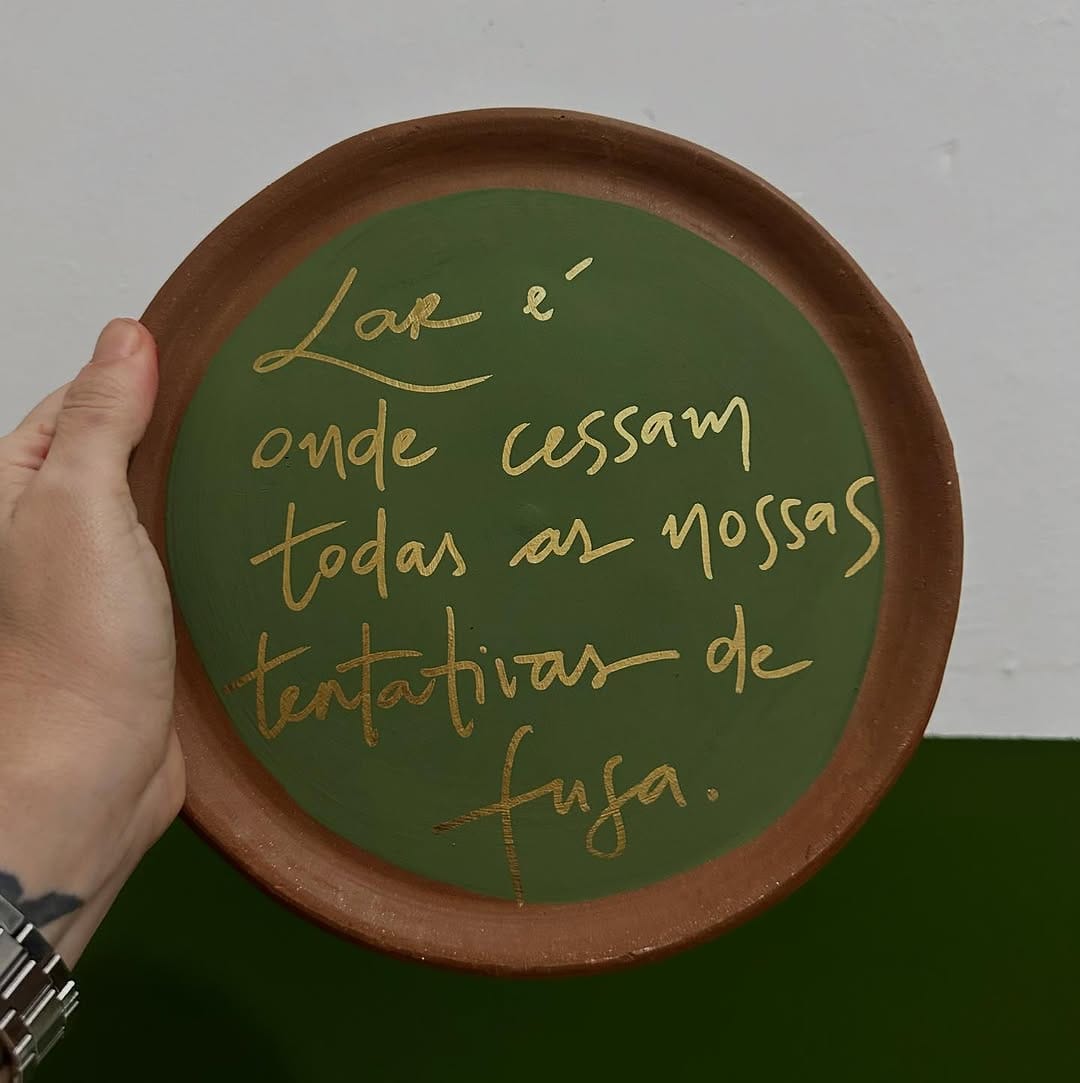 Lar é
onde cessam
todas as nossas
tentativas de
fuga.